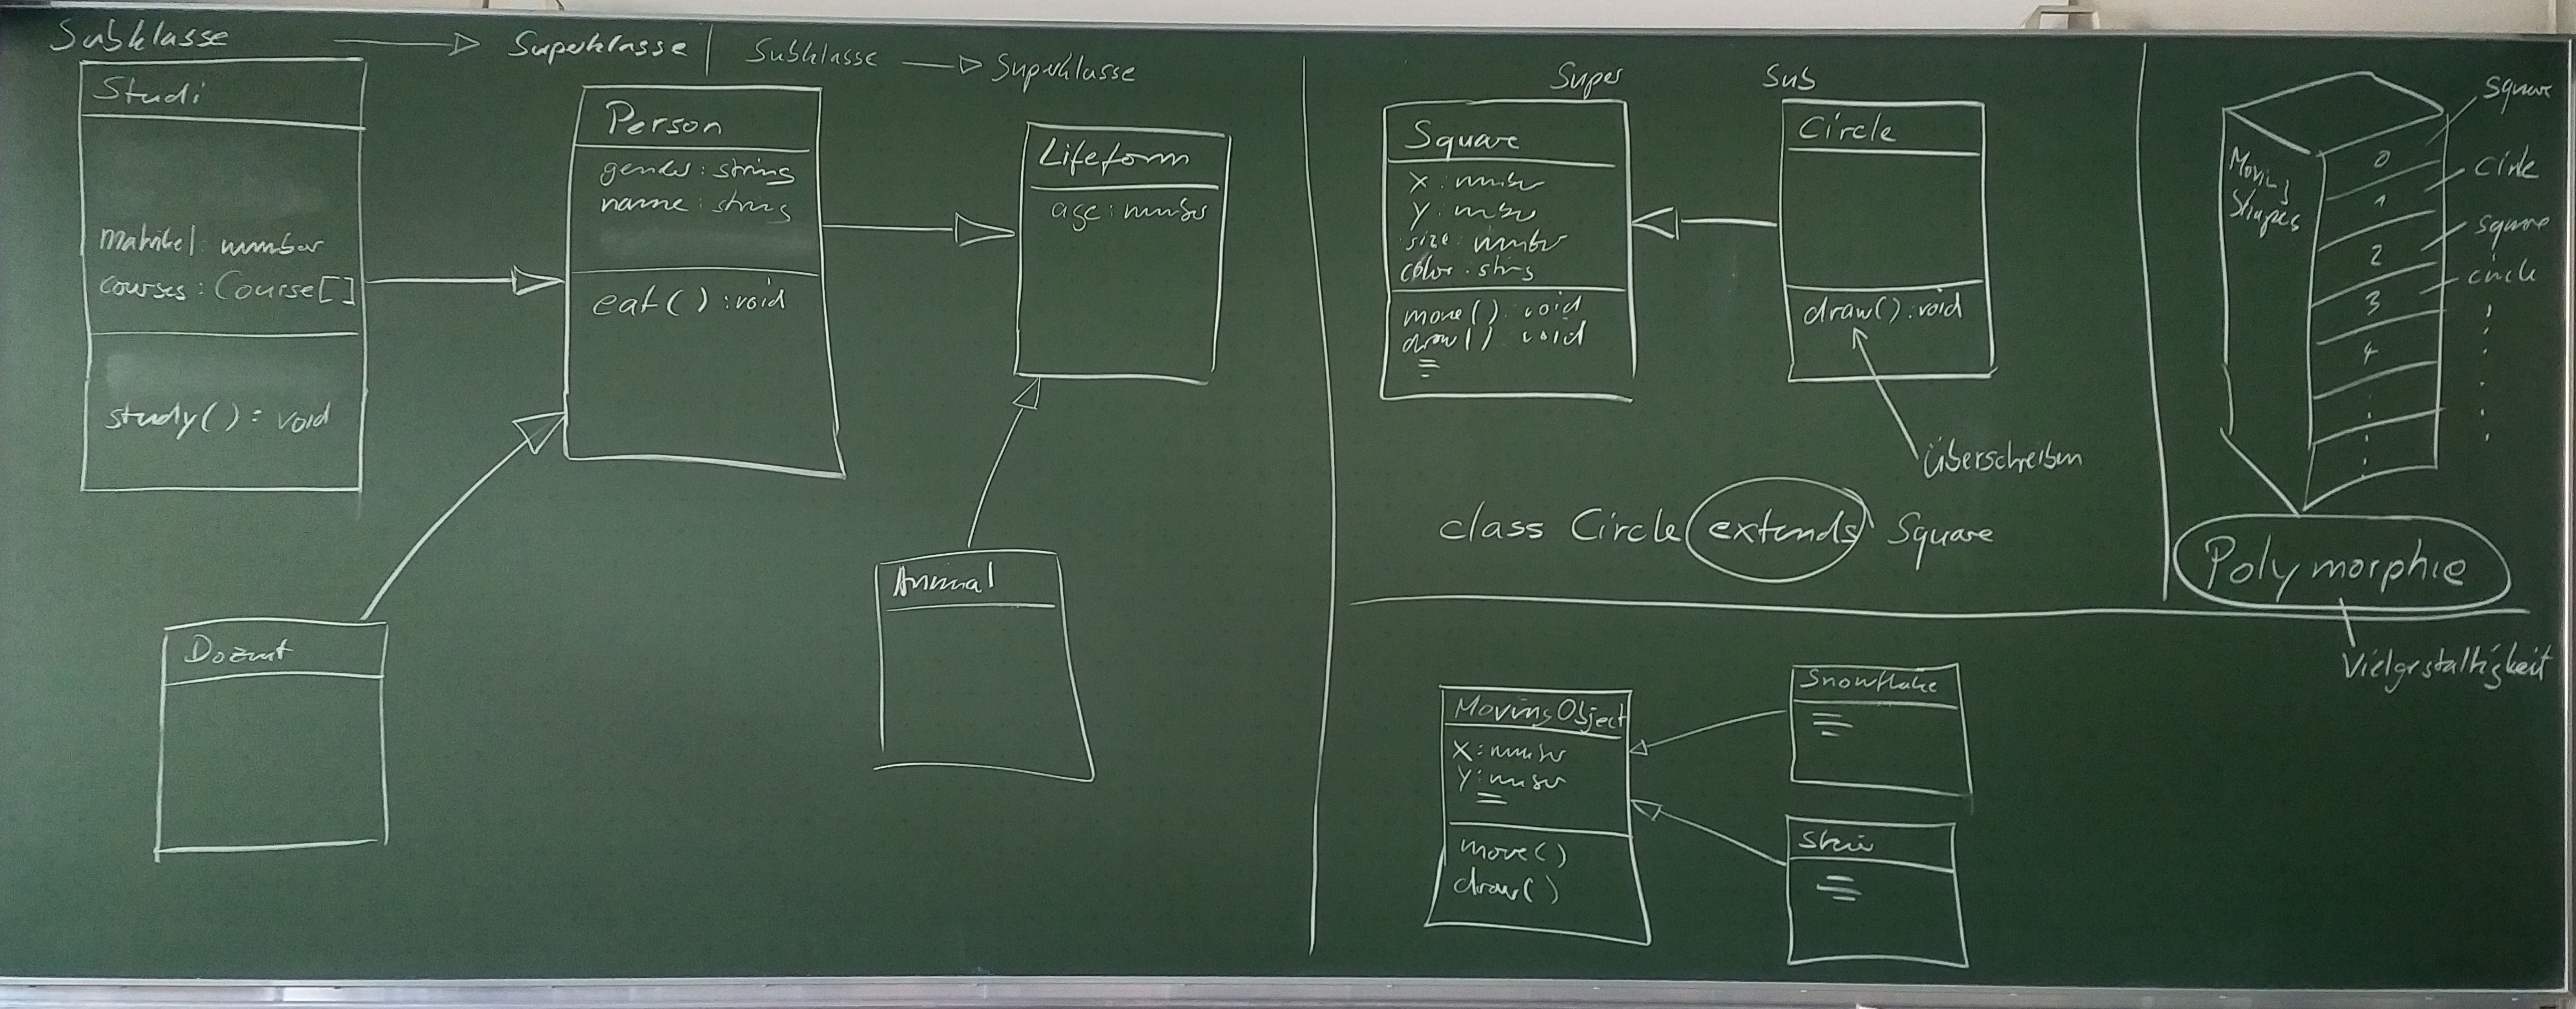 Subklasse
Superklasse
Subklasse
Superklasse
Studi
matrikel: number
courses: Course[]
study(): void
Person
gender: string
name: string
eat(): void
Lifeform
age: number
Dozent
Animal
Super
Sub
Square
x: number
y: number
size: number
color: string
move(): void
draw(): void
Circle
draw(): void
überschreiben
class Circle extends Square
Moving
Shapes
0
1
2
3
4
Square
Circle
square
circle
Polymorphie
Vielgestaltigkeit
MovingObject
x: number
y: number
move()
draw()
Snowflake